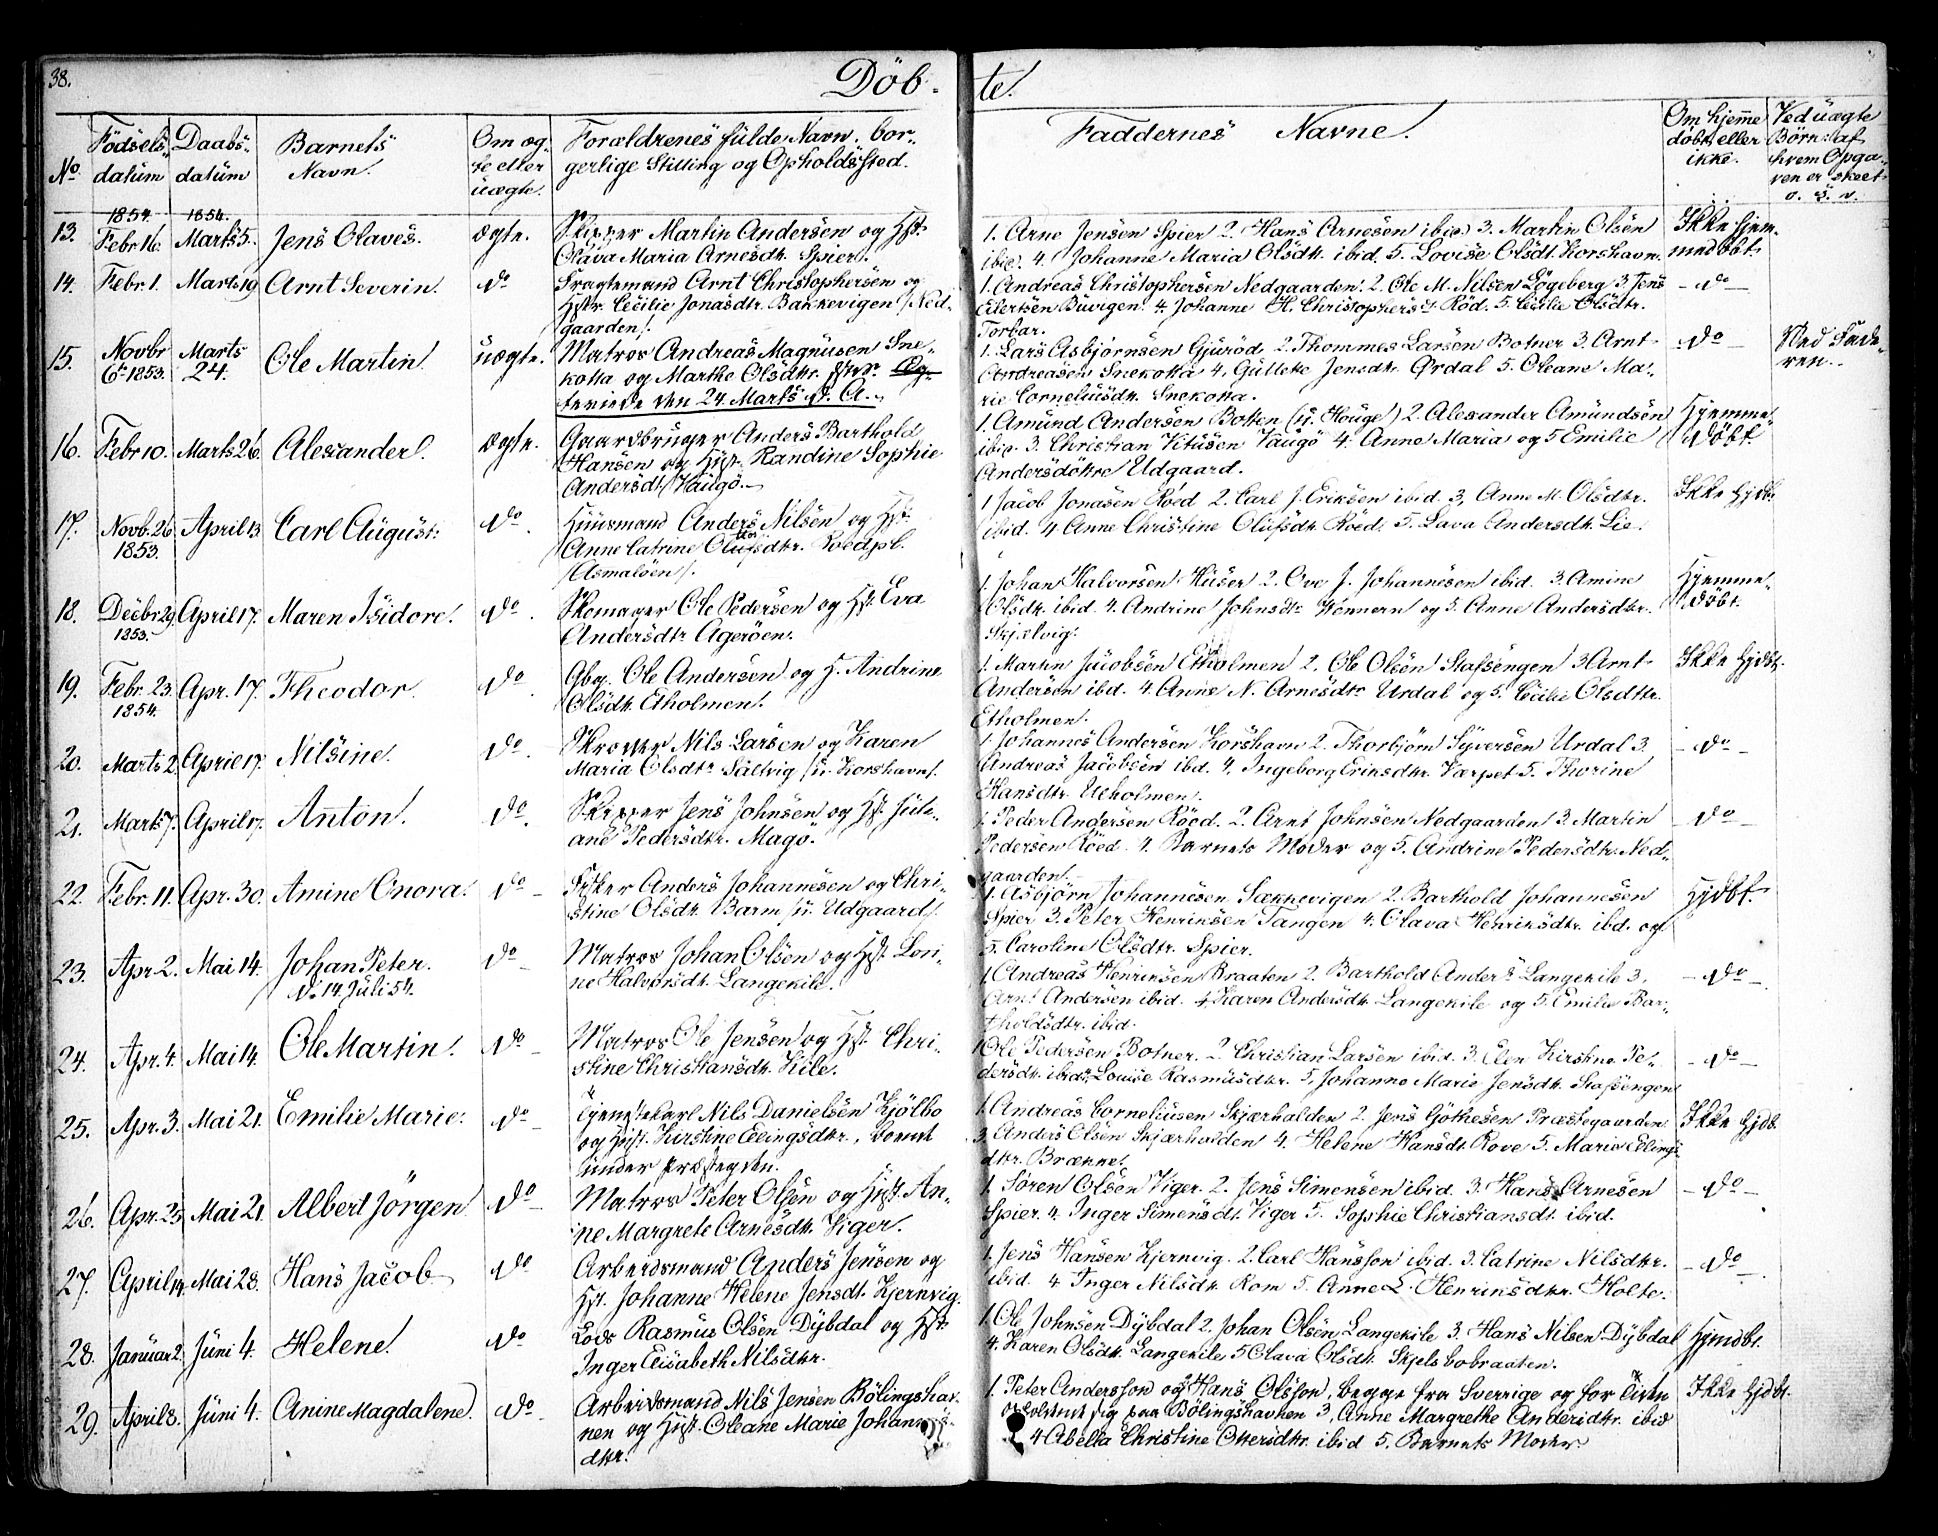 38.
Döb-
te.
No.
Födsels-
datum
Daabs-
datum
Barnets
Navn.
Om æg-
te eller
uægte.
Forældrenes fulde Navn, bor-
gerlige Stilling og Opholdssted.
Faddernes Navne.
Om hjemme
døbt eller
ikke.
Ved uægte
Börn: af
hvem Opga-
ven er skeet
o. s. v.
1854. 1854.
13. Febr. 16. Marts 5. Jens Olaves. ægte.
Skipper Martin Andersen og Hst.
Olava Maria Arnesdtr. Spier.
1. Arne Jensen Spier 2. Hans Arnesen ibid. 3. Martin Olsen
ibid. 4. Johanne Maria Olsdtr. ibid. 5. Lovise Olsdt. Korshavn.
Ikke hjem-
medöbt
14. Febr. 1. Marts 19. Arnt Severin. do
Fragtemand Arnt Christophersen og
Hstr. Cecilie Jonasdtr. Bakkevigen /Ned-
gaarden/.
1. Andreas Christophersen Nedgaarden. 2. Ole M. Nilsen Lögeberg 3. Jens
Eilertsen Buvigen. 4. Johanne H. Christophersdt. Röd. 5. Cecilie Olsdtr.
Torbar.
- do -
15. Novbr 6te 1853. Marts 24. Ole Martin. uægte.
Matros Andreas Magnusen Sne-
kotta og Marthe Olsdtr. Æg-
teviede den 24. Marts d. A.
1. Lars Asbjørnsen Gjuröd 2. Thommes Larsen Botner 3. Arnt
Andreasen Snekotta 4. Gulleke Jensdtr. Ørdal 5. Oleane Ma-
rie Corneliusdtr. Snekotta.
do
Ved Fade-
ren.
16. Febr. 10. Marts 26. Alexander. ægte.
Gaardbruger Anders Barthold
Hansen og Hst. Randine Sophie
Andersdt. Vaugö.
1. Amund Andersen Botten (u. Houge) 2. Alexander Amundsen
ibid. 3. Christian Vitusen Vaugö 4. Anne Maria og 5 Emilie
Andersdöttre Udgaard.
Hjemme-
döbt
17. Novb. 26. 1853. April 13. Carl August: do
Huusmand Anders Nilsen og Hst.
Anne Catrine Olufsdtr. Roedpl.
/Asmalöen/.
1 Jacob Jonasen Roed 2. Carl J. Eriksen ibid. 3, Anne M. Olsdtr.
ibid. 4 Anne Christine Olufsdtr. Röed. 5. Lava Andersdtr. Lie.
Ikke hjdbt.
18. Decbr 29. 1853. April 17. Maren Isidore. do
Skomager Ole Pedersen og Hst. Eva
Andersdtr Agerøen.
1. Johan Halvorsen Huser 2. Ove J. Johannesen ibid. 3. Amine
Olsdtr. ibid. 4. Andrine Johnsdtr. Hönnern og 5. Anne Andersdtr.
Skjælvig.
Hjemme-
döbt.
19. Febr. 23. 1854. Apr. 17. Theodor. do
Gbg. Ole Andersen og H. Andrine
Olsdtr. Etholmen.
1. Martin Jacobsen Etholmen 2. Ole Olsen Stafsengen 3 Arnt
Andersen ibd. 4. Anne N. Arnesdtr Urdal og 5. Cecilie Olsdtr.
Etholmen.
Ikke hjdbt.
20. Marts 2. April 17. Nilsine. do
Skrædder Nils Larsen og Karen
Maria Olsdtr Saltvig /u. Korshavn/.
1. Johannes Andersen Korshavn 2. Thorbjörn Syversen Urdal 3.
Andreas Jacobsen ibd. 4. Ingeborg Eriksdtr. Værpet 5. Thorine
Hansdtr Utholmen.
- do -
21. Marts 7. April 17. Anton. do
Skipper Jens Johnsen og Hst. Jule-
ane Pedersdtr. Magö.
1. Peder Andersen Röed. 2. Arnt Johnsen Nedgaarden 3. Martin
Pedersen Röed. 4. Barnets Moder og 5. Andrine Pedersdtr. Ned-
gaarden.
- do -
22. Febr. 11. Apr. 30. Amine Onora. do
Fisker Anders Johannesen og Chri-
stine Olsdtr. Barm /u. Udgaard/.
1. Asbjørn Johannesen Sækkevigen 2. Barthold Johannesen
Spier 3. Peter Henriksen Tangen 4. Olava Henriksdtr. ibd. og
5. Caroline Olsdtr. Spier.
Hjdbt.
23. Apr. 2. Mai 14. Johan Peter. do
d. 14 Juli 54.
Matros Johan Olsen og Hst. Lori-
ne Halvorsdt. Langekile.
1. Andreas Henriksen Braaten 2. Barthold Anders. Langekile 3.
Arnt Andersen ibid. 4. Karen Andersdt. Langekile og 5. Emilie Bar-
tholdsdtr. ibid.
- do -
24. Apr. 4. Mai 14. Ole Martin. do
Matros Ole Jensen og Hst. Chri-
stine Christiansdt. Kile.
1 Ole Pedersen Botner. 2. Christian Larsen ibid. 3. Elen Kirstine Pe-
dersdt. ibid 4. Louise Rasmusdtr. 5. Johanne Marie Jensdt. Stafsengen
- do -
25. Apr. 3. Mai 21. Emilie Marie: do
Tjenestekarl Nils Danielsen Kjölbo
og Hst. Kirstine Ellingsdtr., komt
under Præstegrden.
1. Andreas Corneliusen Skjærhalden 2. Jens Göthesen Præstegaarden
3. Anders Olsen Skjærhalden 4. Helene Hansdt Rove 5. Maria Elings-
dtr. Brænne.
Ikke hjdb.
26. Apr. 25. Mai 21. Albert Jörgen do
Matros Peter Olsen og Hst. An-
ine Margrete Arnesdt. Viger.
1. Sören Olsen Viger. 2. Jens Simensen ibid. 3. Hans Arnesen
Spier. 4. Inger Simensdt. Viger 5. Sophie Christiansdt. ibid.
- do -
27. April 14. Mai 28. Hans Jacob do
Arbeidsmand Anders Jensen og
Hst. Johanne Helene Jensdt. Kjernvig.
1. Jens Hansen Kjernvig. 2. Carl Hansson ibid. 3. Catrine Nilsdtr.
ibid. 4 Inger Nilsdtr. Rom 5. Anne L. Henriksdtr. Holte.
- do -
28. Januar 2. Juni 4. Helene. do
Lods Rasmus Olsen Dybdal og Hst.
Inger Elisabeth Nilsdtr.
1. Ole Johnsen Dybdal 2. Johan Olsen Langekile 3. Hans Nilsen Dybdal
4. Karen Olsdtr. Langekile, 5 Olava Olsdt. Skjelsbobraaten.
Hjmdbt.
29. April 8. Juni 4. Anine Magdalene. do
Arbeidsmand Nils Jensen Bölingshav-
nen og Hst. Oleane Marie Johannes-
dtr.
1. Peter Andersson og 2 Hans Olsson, begge fra Sverrige og for Tiden
opholdende sig paa Bölingshavnen 3, Anne Margrethe Andersdtr. ibid
4 Abella Christine Ottersdtr. ibid 5. Barnets Moder.
Ikke hjdbt.